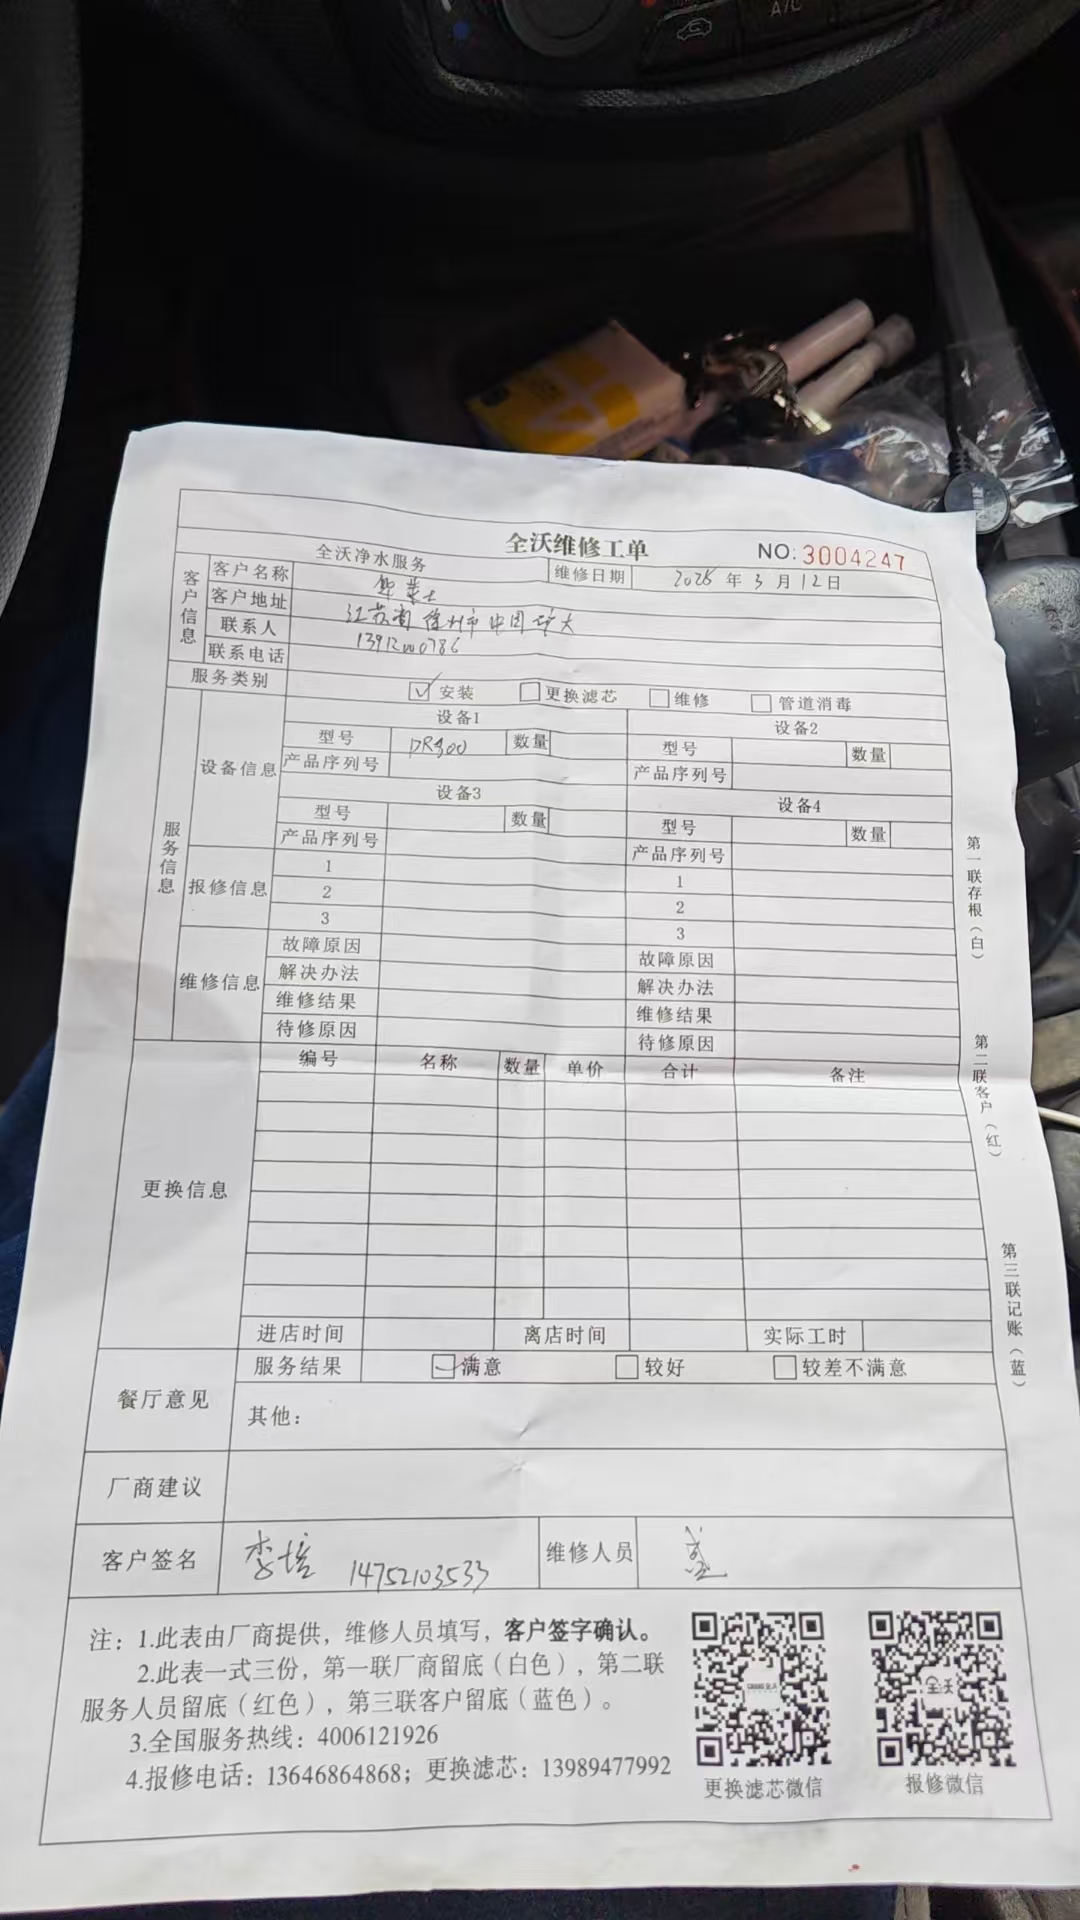 全沃维修工单
NO:3004247
全沃净水服务 维修日期 年3月12日
客户信息
客户名称 华莱士
客户地址 江苏省徐州市中国矿大
联系人
联系电话
服务类别 安装 更换滤芯 维修 管道消毒
服务信息
设备信息
设备1 设备2
型号 DR400 数量 型号 数量
产品序列号 产品序列号
设备3 设备4
型号 数量 型号 数量
产品序列号 产品序列号
报修信息
1 1
2 2
3 3
维修信息
故障原因 故障原因
解决办法 解决办法
维修结果 维修结果
待修原因 待修原因
更换信息
编号 名称 数量 单价 合计 备注
进店时间 离店时间 实际工时
餐厅意见
服务结果 满意 较好 较差不满意
其他:
厂商建议
客户签名 李培 14752103533 维修人员
注: 1.此表由厂商提供,维修人员填写,客户签字确认。
2.此表一式三份,第一联厂商留底(白色),第二联
服务人员留底(红色),第三联客户留底(蓝色)。
3.全国服务热线: 4006121926
4.报修电话: 13646864868; 更换滤芯: 13989477992
更换滤芯微信
全沃
报修微信
第一联存根(白)
第二联客户(红)
第三联记账(蓝)
A/C